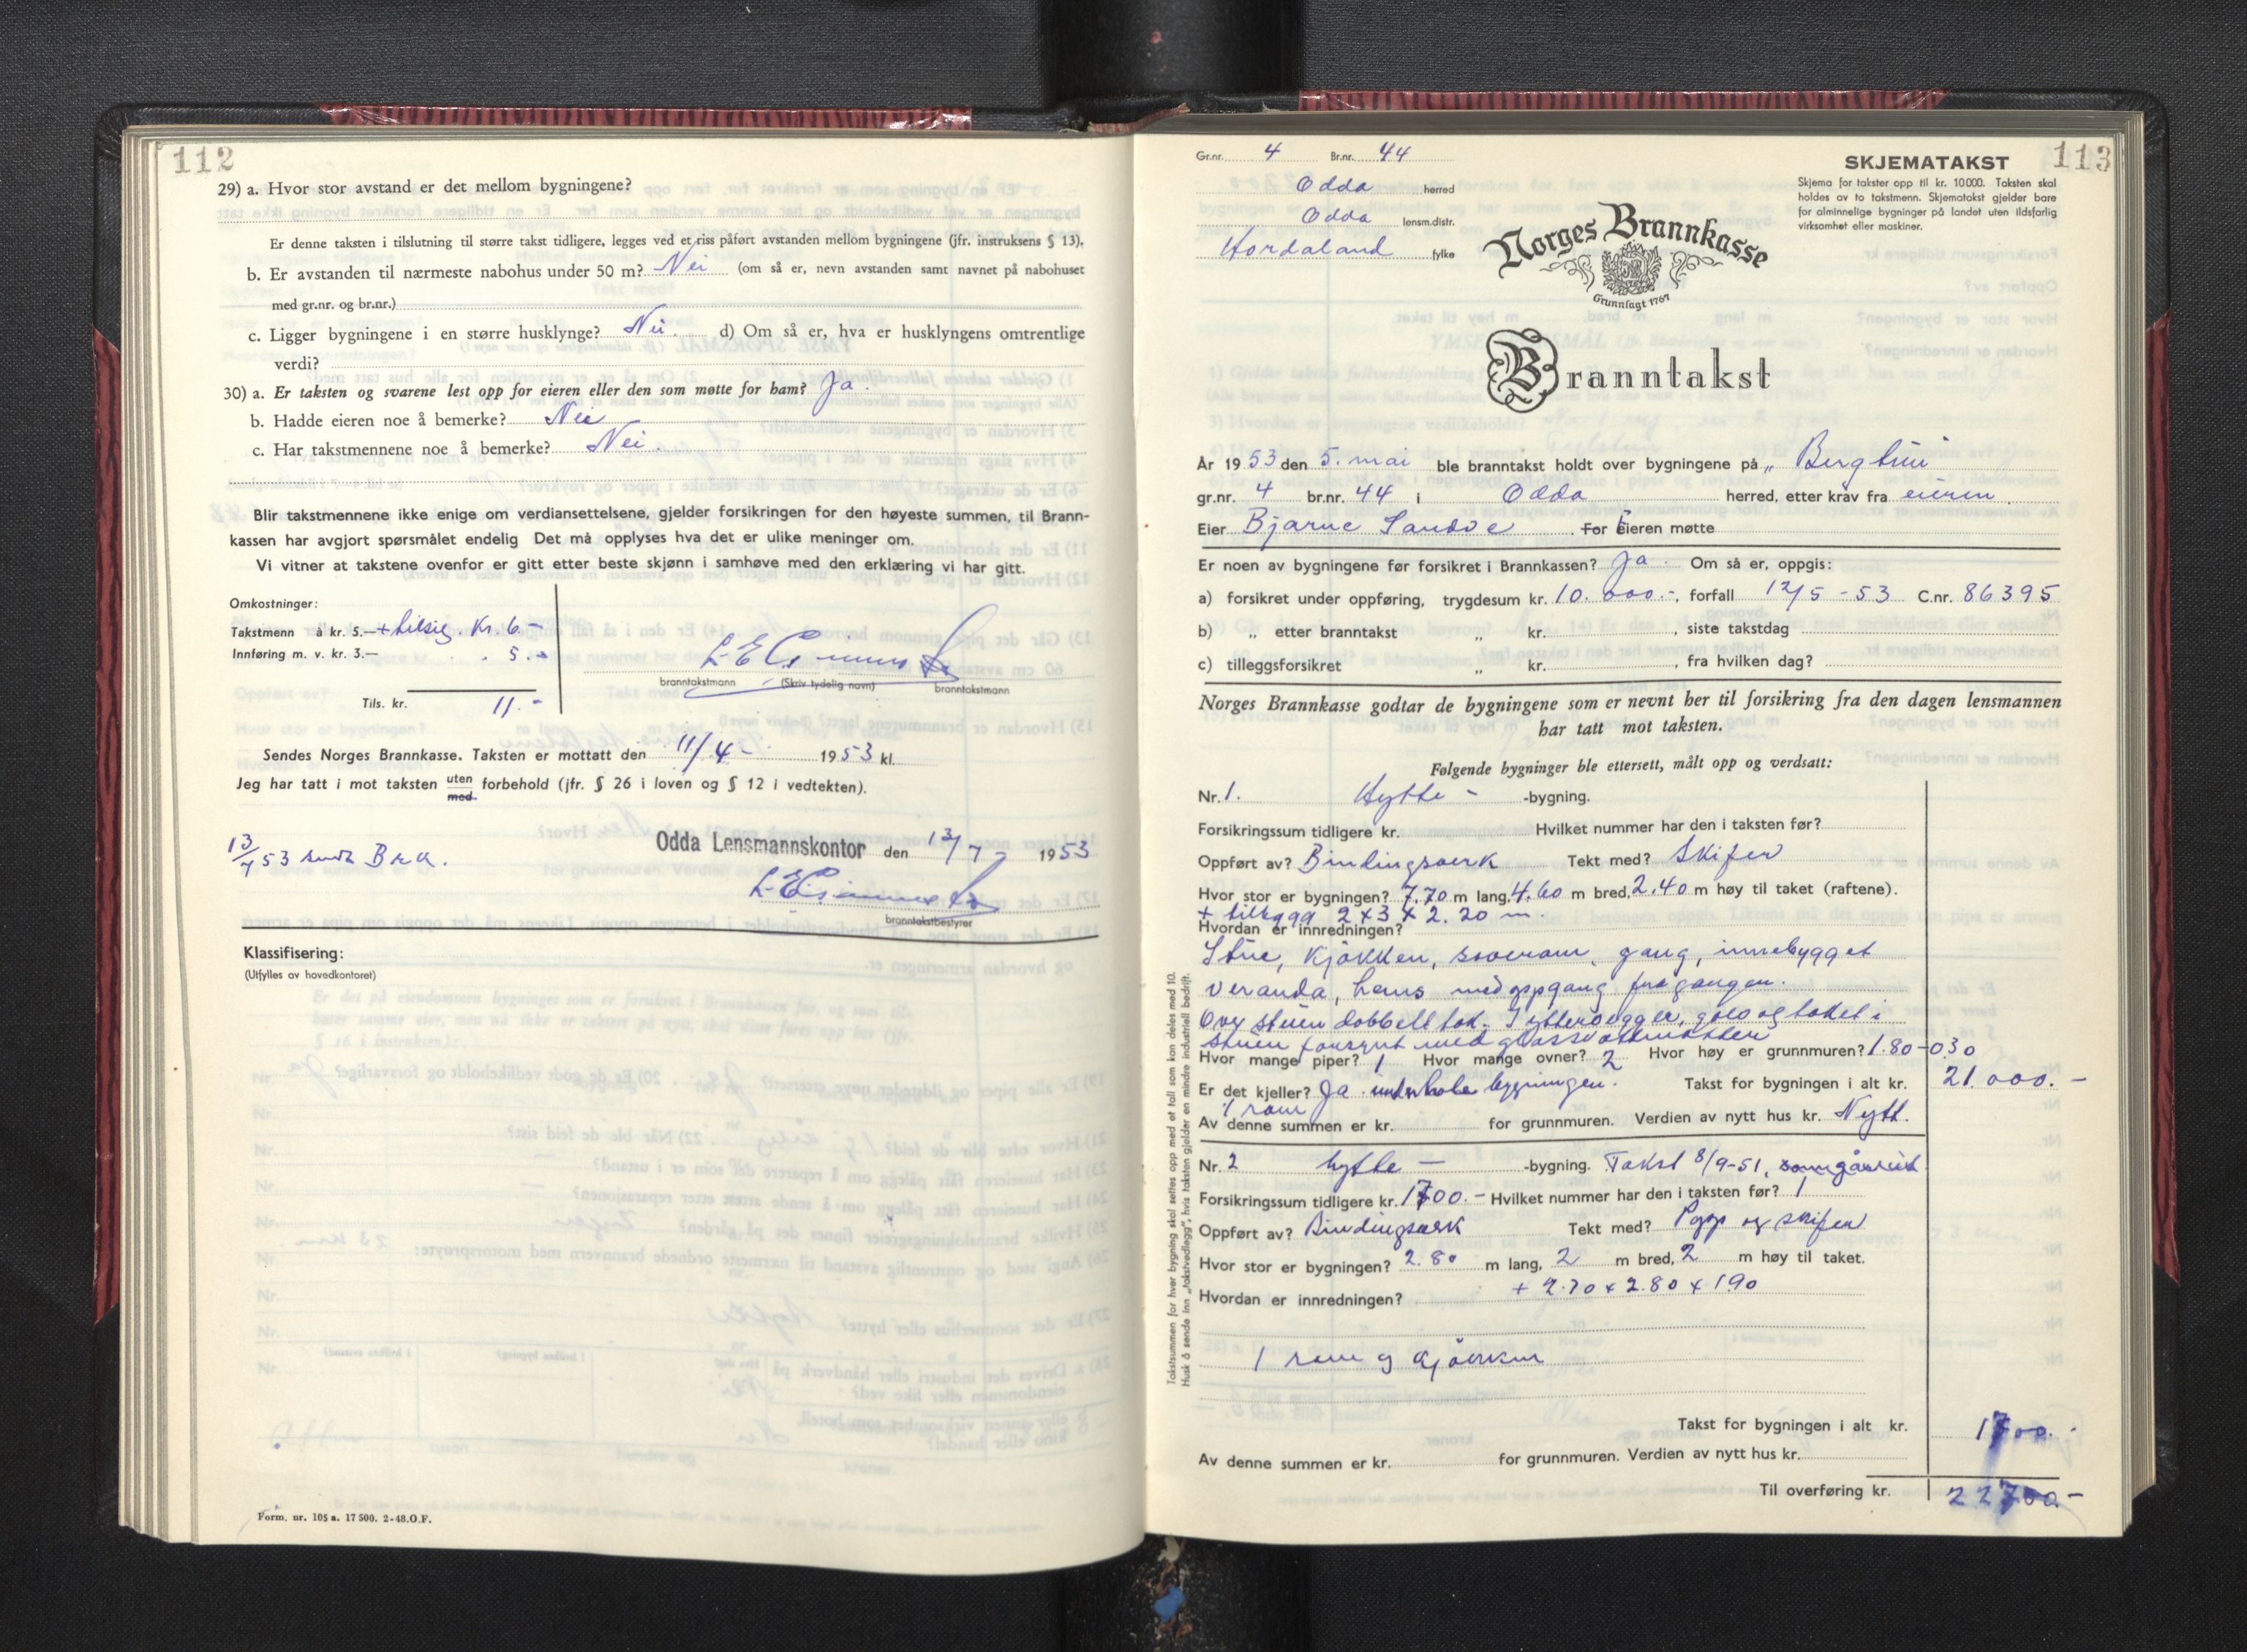 112
29) a. Hvor stor avstand er det mellom bygningene?
Er denne taksten i tilslutning til større takst tidligere, legges ved et riss påført avstanden mellom bygningene (jfr. instruksens § 13).
b. Er avstanden til nærmeste nabohus under 50 m? Nei (om så er, nevn avstanden samt navnet på nabohuset
med gr.nr. og br.nr.)
c. Ligger bygningene i en større husklynge? Nei. d) Om så er, hva er husklyngens omtrentlige
verdi?
30) a. Er taksten og svarene lest opp for eieren eller den som møtte for ham? Ja.
b. Hadde eieren noe å bemerke? Nei
c. Har takstmennene noe å bemerke? Nei.
Blir takstmennene ikke enige om verdiansettelsene, gjelder forsikringen for den høyeste summen, til Brann-
kassen har avgjort spørsmålet endelig Det må opplyses hva det er ulike meninger om.
Vi vitner at takstene ovenfor er gitt etter beste skjønn i samhøve med den erklæring vi har gitt.
Omkostninger:
Takstmenn à kr. 5.— + tilsig. Kr. 6.-
Innføring m. v. kr. 3.— 5.-
branntakstmann (Skriv tydelig navn) branntakstmann
Tils. kr. 11.-
Sendes Norges Brannkasse. Taksten er mottatt den 11/4- 1953 kl.
Jeg har tatt i mot taksten uten med forbehold (jfr. § 26 i loven og § 12 i vedtekten).
13/7 53 sendt Bra.
Odda Lensmannskontor den 13/7 1953
branntakstbestyrer
Klassifisering:
(Utfylles av hovedkontoret)
Form. nr. 105 a. 17 500. 2-48.O.F.
Gr.nr. 4 Br.nr. 44
Odda herred
Odda lensm.distr.
Hordaland fylke
SKJEMATAKST 113
Skjema for takster opp til kr. 10000. Taksten skal
holdes av to takstmenn. Skjematakst gjelder bare
for alminnelige bygninger på landet uten ildsfarlig
virksomhet eller maskiner.
Norges Brannkasse
Grunnlagt 1767
Branntakst
År 1953 den 5. mai ble branntakst holdt over bygningene på „ Bergtun
gr.nr. 4 br.nr. 44 i Odda herred, etter krav fra eieren.
Eier Bjarne Sandve. For Eieren møtte
Er noen av bygningene før forsikret i Brannkassen? Ja. Om så er, oppgis:
a) forsikret under oppføring, trygdesum kr. 10.000.-, forfall 12/5-53 C.nr. 86395
b) „ etter branntakst „ kr. , siste takstdag
c) tilleggsforsikret „ kr. , fra hvilken dag?
Norges Brannkasse godtar de bygningene som er nevnt her til forsikring fra den dagen lensmannen
har tatt mot taksten.
Følgende bygninger ble ettersett, målt opp og verdsatt:
Nr. 1. Hytte - -bygning.
Forsikringssum tidligere kr. Hvilket nummer har den i taksten før?
Oppført av? Bindingsverk Tekt med? Skifer
Hvor stor er bygningen? 7,70 m lang, 4.60 m bred, 2.40 m høy til taket (raftene).
+ tilbygg 2 x 3 x 2.20 m.
Hvordan er innredningen?
Stue, kjøkken, soverom, gang, innebygget
veranda, hems med oppgang fra gangen.
Over stuen dobbelt tak. I yttervegger, golv og taket i
stuen forsynt med glassvattmatter
Hvor mange piper? 1 Hvor mange ovner? 2 Hvor høy er grunnmuren? 1.80-0.30
Er det kjeller? Ja under hele bygningen. Takst for bygningen i alt kr. 21.000.-
1 rom
Av denne summen er kr. for grunnmuren. Verdien av nytt hus kr. Nytt.
Nr. 2 hytte - -bygning. Takst 8/9-51,
Forsikringssum tidligere kr. 1700.- Hvilket nummer har den i taksten før? 1
Oppført av? Bindingsverk Tekt med? Papp og skifer
Hvor stor er bygningen? 2.80 m lang, 2 m bred, 2 m høy til taket.
+ 2.70 x 2.80 x 1.90
Hvordan er innredningen?
1 rom og kjøkken
Takst for bygningen i alt kr. 1700.-
Av denne summen er kr. for grunnmuren. Verdien av nytt hus kr.
Til overføring kr. 22700.-
Takstsummen for hver bygning skal settes opp med et tall som kan deles med 10.
Husk å sende inn „takstvedlegg", hvis taksten gjelder en mindre industriell bedrift.